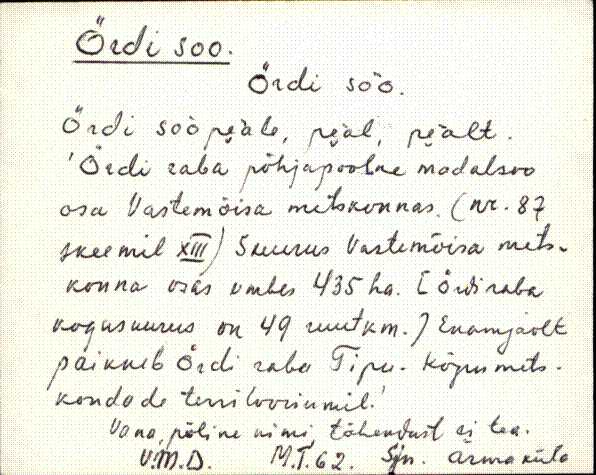 Õrdi soo.
Õrdi sòo.
Õrdi sòo pȩ̀äle, pȩ̀äl, pȩ̀ält.
'Õrdi raba põhjapoolne madalsoo
osa Vastemõisa metskonnas. (nr. 87
skeemil XIII) Suurus Vastemõisa mets-
konna osas umbes 435 ha. [Õrdi raba
kogusuurus on 49 ruutkm.] Enamjaolt
paikneb Õrdi raba Tipu - Kõpu mets-
kondade territooriumil.'
Vana, põline nimi, tähendust ei tea.
V.M.D. M.T. 62. Sjn. Arma küla